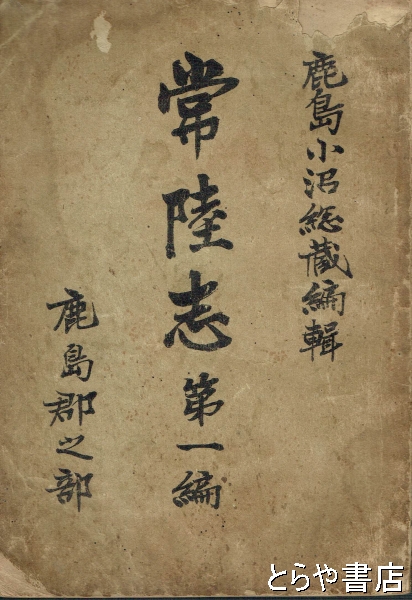 鹿島小沼総蔵編輯
常陸志第一編
鹿島郡之部
とらや書店